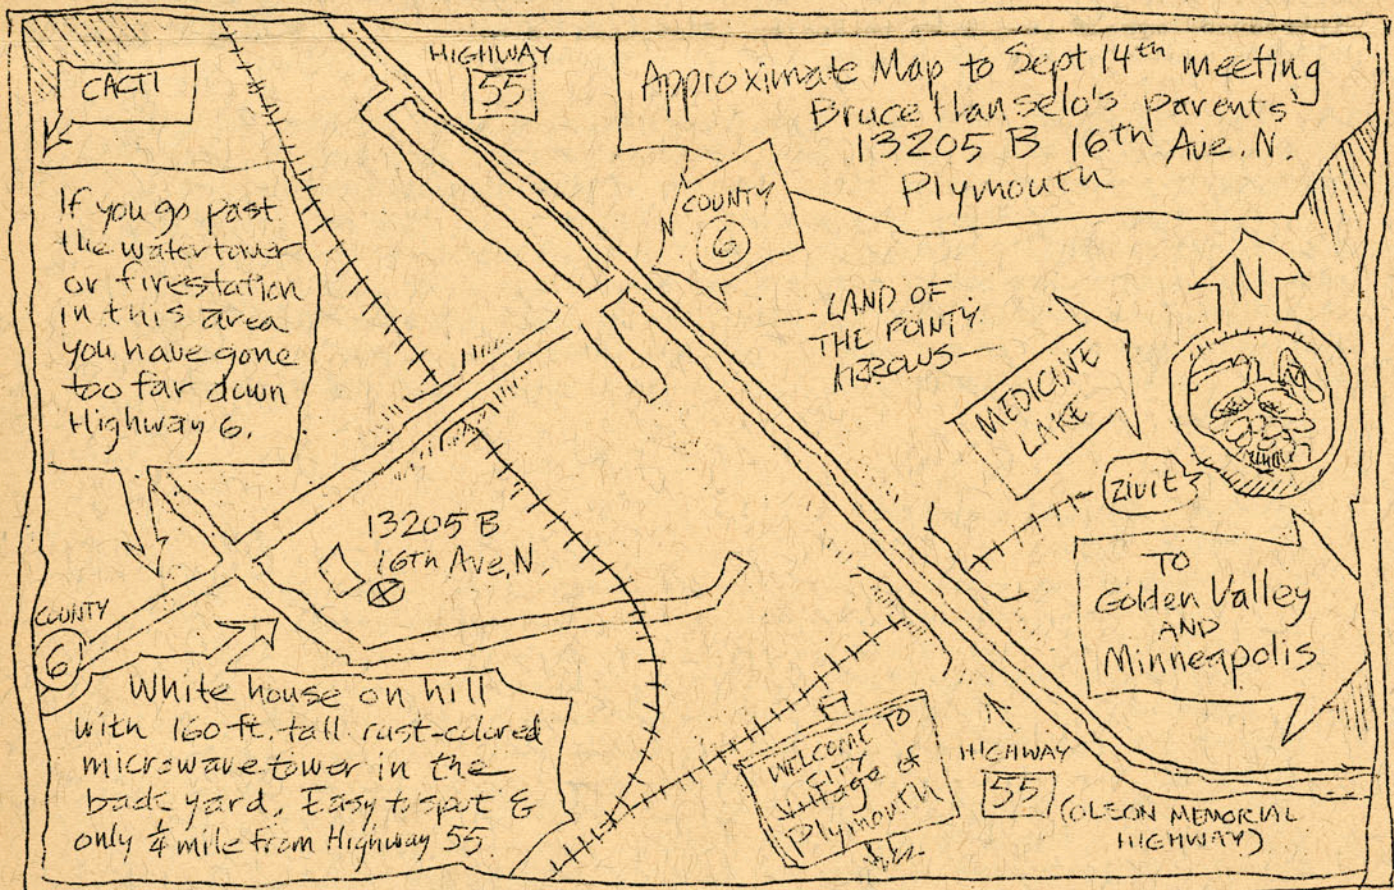 CACTI
HIGHWAY
55
Approximate Map to Sept 14th meeting
Bruce Hanselo's parents'
13205 B 16th Ave. N.
Plymouth
COUNTY
6
If you go past
the watertower
or firestation
in this area
you have gone
too far down
Highway 6.
LAND OF
THE POINTY
ARROWS
N
MEDICINE
LAKE
zivit
13205 B
16th Ave. N.
TO
Golden Valley
AND
Minneapolis
COUNTY
6
White house on hill
with 160 ft. tall rust-colored
microwave tower in the
back yard. Easy to spot &
only ¼ mile from Highway 55
WELCOME TO
CITY
Village of
Plymouth
HIGHWAY
55
(OLSON MEMORIAL
HIGHWAY)